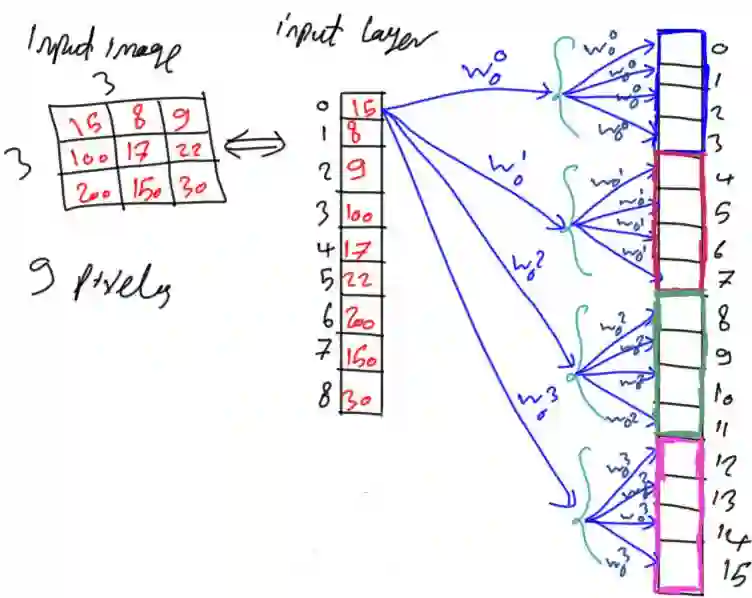 Input image
3
3
15 8 9
100 17 22
200 150 30
9 pixels
input layer
0 15
1 8
2 9
3 100
4 17
5 22
6 200
7 150
8 30
w₀⁰
w₀¹
w₀²
w₀³
w₀⁰
w₀⁰
w₀⁰
w₀⁰
w₀¹
w₀¹
w₀¹
w₀¹
w₀²
w₀²
w₀²
w₀²
w₀³
w₀³
w₀³
w₀³
0
1
2
3
4
5
6
7
8
9
10
11
12
13
14
15